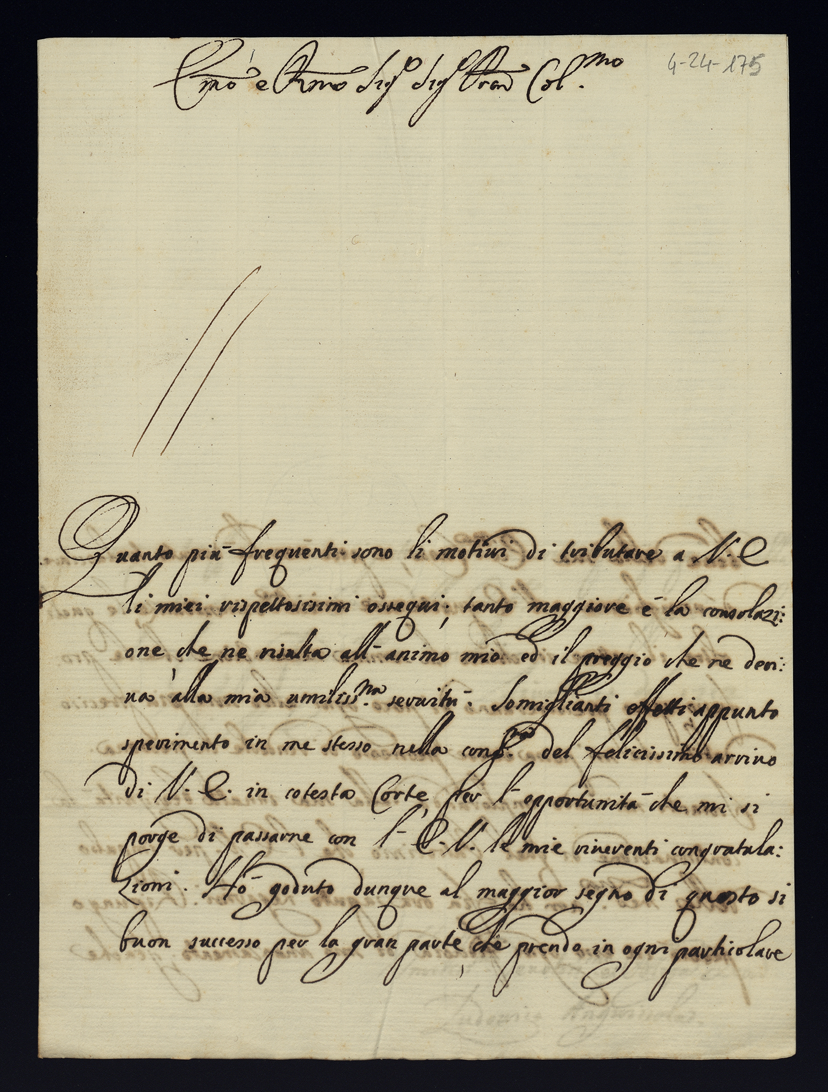 Emo e Rmo Sigr Sigr Pron Col.mo
4-24-175
Quanto più frequenti sono li motivi di tributare a V. E
li miei rispettosissimi ossequi, tanto maggiore è la consolazi:
one che ne risulta all'animo mio ed il preggio che ne deri:
va alla mia umiliss.ma servitù. Somiglianti effetti appunto
sperimento in me stesso nella del felicissimo arrivo
di V. E. in cotesta Corte, per l'opportunità che mi si
porge di passarne con l'E. V. le mie riverenti congratula:
zioni. Hò goduto dunque al maggior segno di questo si
buon successo per la gran parte, che prendo in ogni particolare